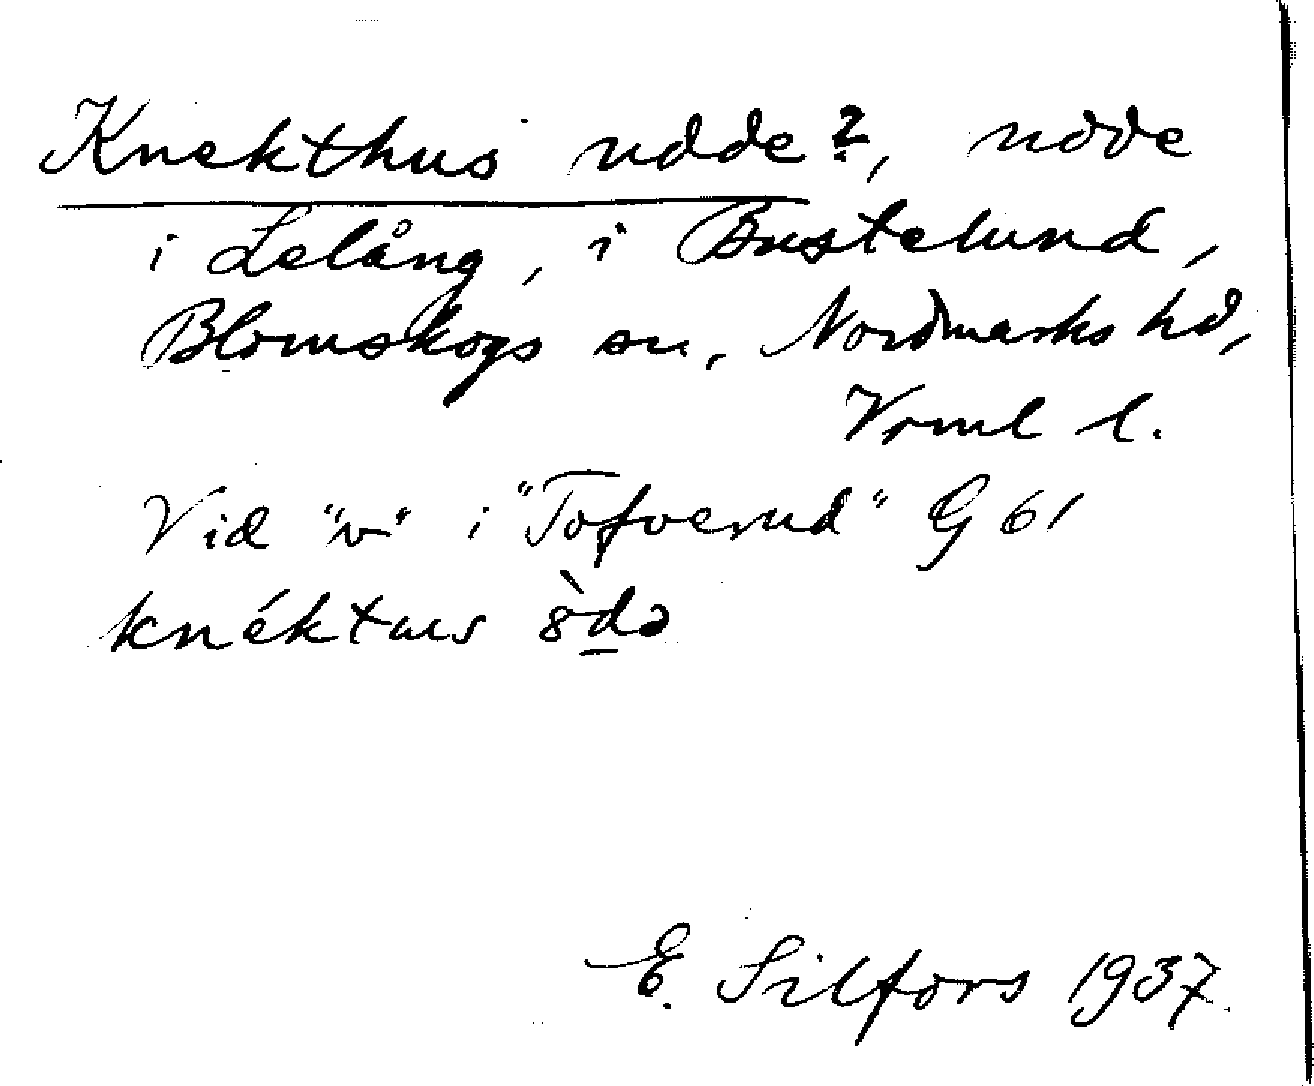 Knekthus udde?, udde
i Lelång, i Bustelund,
Blomskogs sn, Nordmarks hd,
Vrml l.
Vid "v" i "Tofverud" G 61
knéktus 8̀də
E. Silfors 1937.